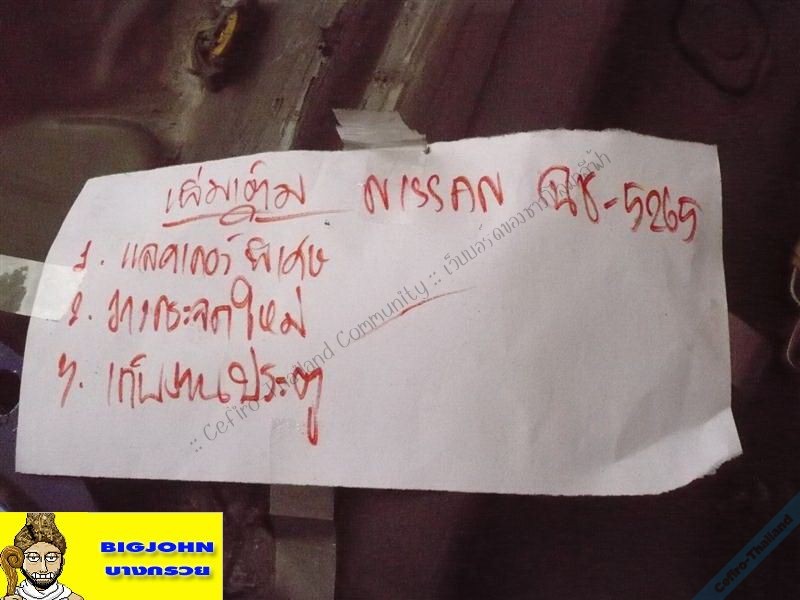 เพิ่มเติม NISSAN ฌช-5265
1. แลคเกอร์พิเศษ
2. ยางกระจกใหม่
3. เก็บงานประตู
:: Cefiro-Thailand Community :: เว็บบอร์ดของชาวเซฟิโร่
BIGJOHN
บางกรวย
Cefiro-Thailand